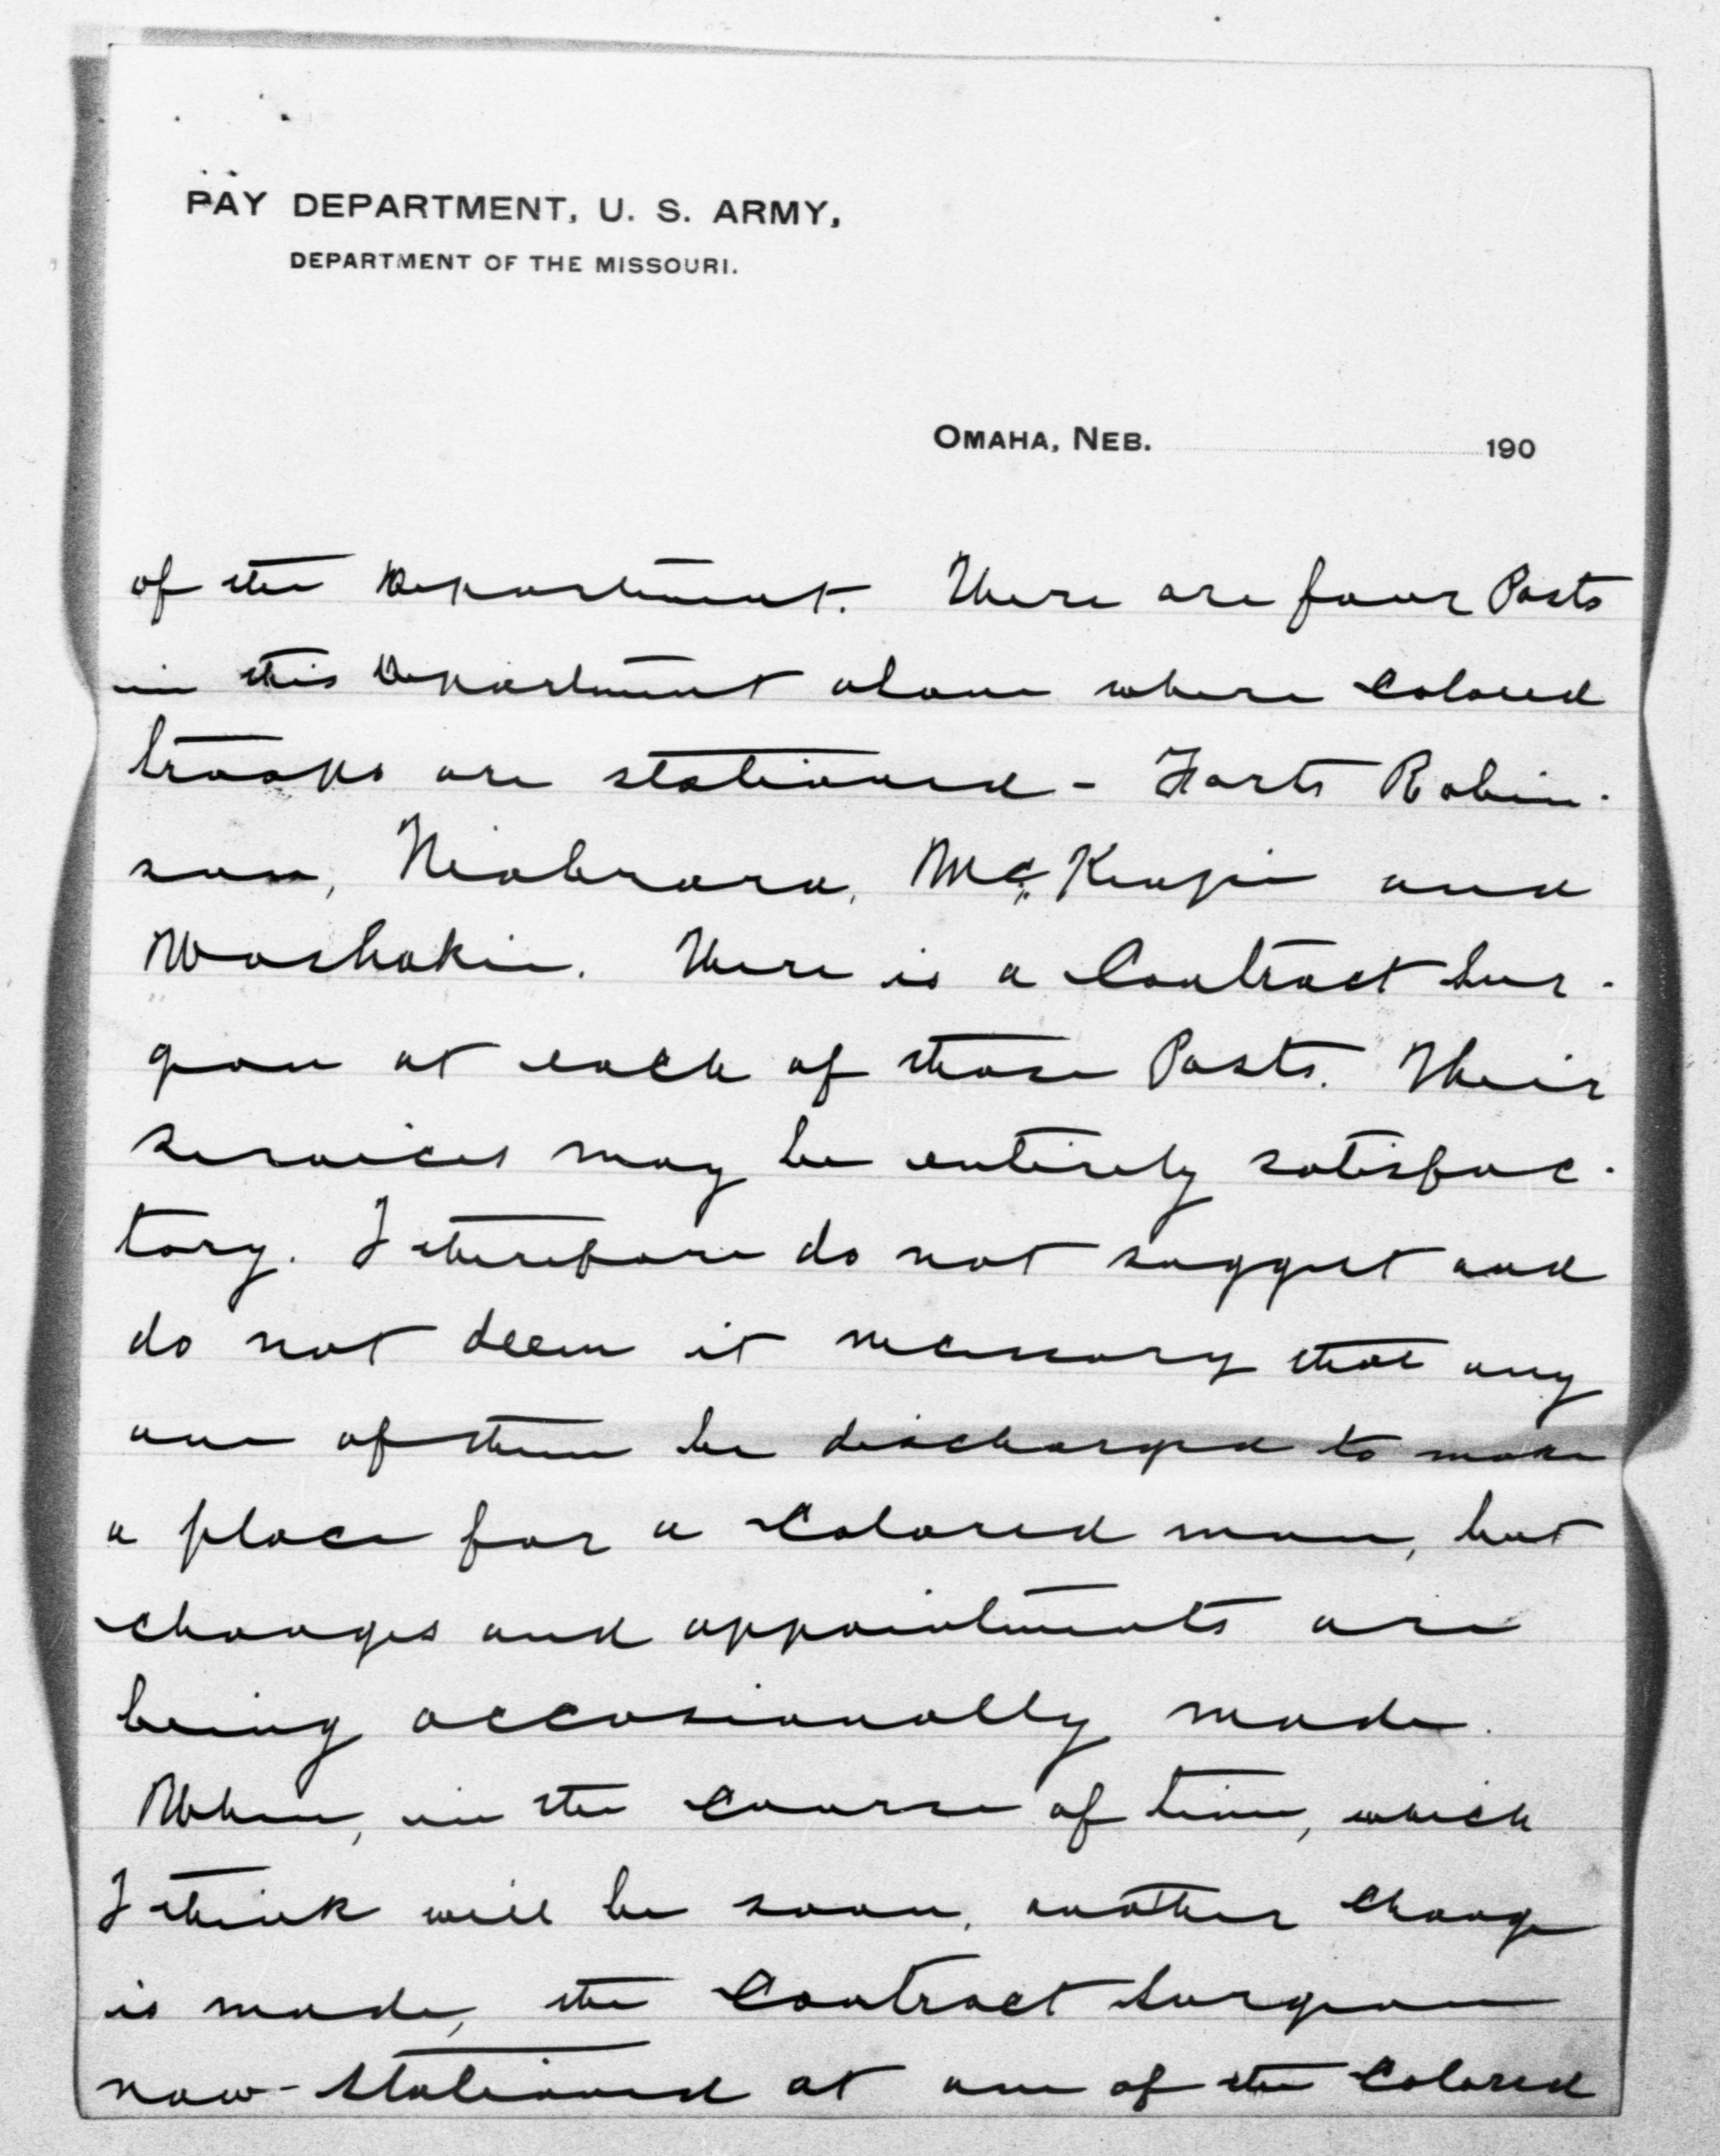 PAY DEPARTMENT, U. S. ARMY,
DEPARTMENT OF THE MISSOURI.
OMAHA, NEB. 190
of the Department. There are four Posts
in this Department alone where Colored
troops are stationed - Forts Robin-
son, Niobrara, McKenzie and
Washakie. There is a Contract Sur-
geon at each of those Posts. Their
services may be entirely satisfac-
tory. I therefore do not suggest and
do not deem it necessary that any
one of them be discharged to make
a place for a Colored man, but
changes and appointments are
being occasionally made.
When, in the course of time, which
I think will be soon, another change
is made, the Contract Surgeon
now stationed at one of the Colored